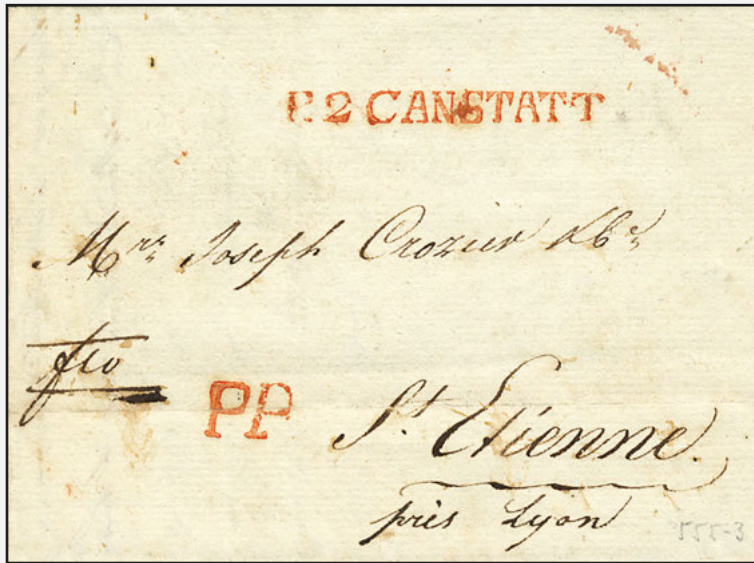 R.2 CANSTATT
Mrs Joseph Crozier & Ce
fco
PP
St Etienne
près Lyon